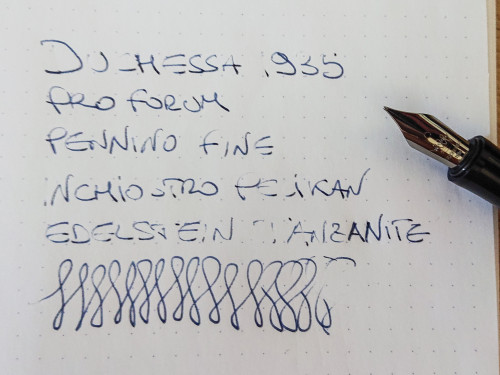 DUCHESSA 1935
PRO FORUM
PENNINO FINE
INCHIOSTRO PELIKAN
EDELSTEIN TANZANITE